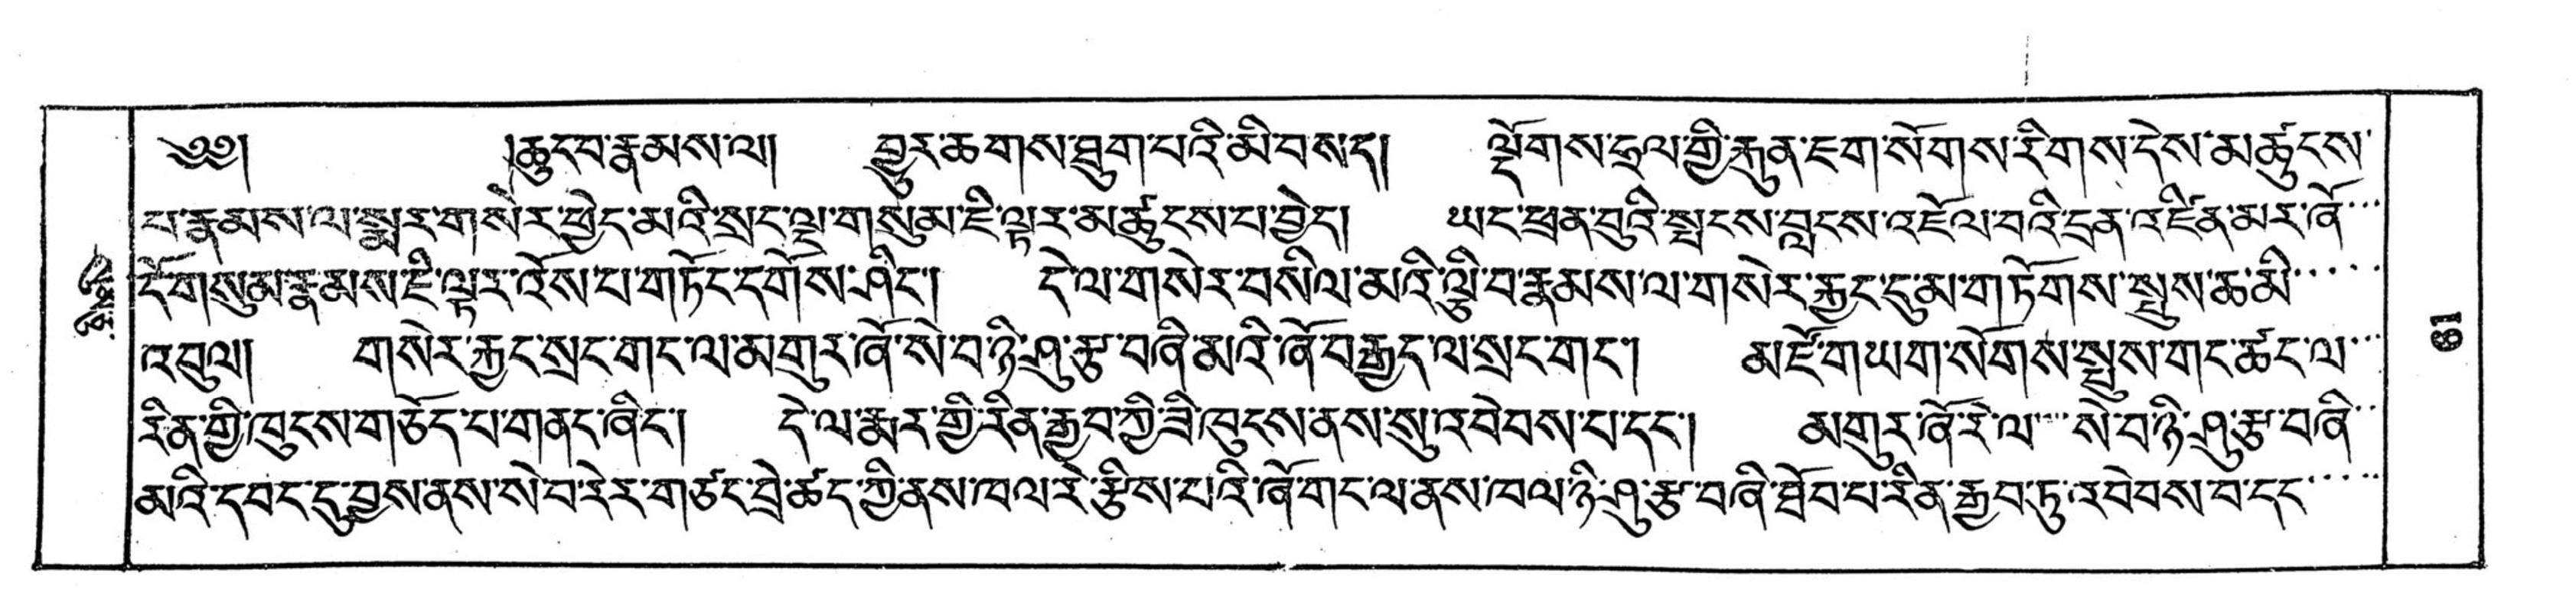 ༄༅། །ཆུད་བ་རྣམས་ལ། བྱུར་ཆགས་ཐུག་པའི་མི་བསད། ལྟོགས་ཧྲལ་གྱི་རྐུན་ཇག་སོགས་རིགས་དེས་མཚུངས་
པ་རྣམས་ལ་སྨར་གསེར་ཕྱེད་མའི་སྲང་ལྔ་གསུམ་ཇི་ལྟར་མཚུངས་པ་བྱེད། ཡང་ཕྲན་བུའི་སྤངས་བླངས་འཇོལ་བའི་དྲན་འཛིན་མར་ཞོ
དོ་གསུམ་རྣམས་ཇི་ལྟར་འོས་པ་གཏོང་དགོས་ཤིང་། དེ་ལ་གསེར་བསིལ་མའི་ལྕི་བ་རྣམས་ལ་གསེར་རྐྱང་དུམ་གཏོགས་སྤུས་ཆ་མི
འབུལ། གསེར་རྐྱང་སྲང་གང་ལ་མགུར་ཞོ་སེ་བ་ཉི་ཤུ་རྩ་བཞི་མའི་ཞོ་བརྒྱད་ལ་སྲང་གང་། མཛོ་གཡག་སོགས་སྤུས་གང་ཚང་ལ
རིན་གྱི་ཁུངས་གཅོད་པ་གནང་ཞིང་། དེ་ལ་རྨར་གྱི་རིན་རྒྱབ་ཀྱི་ཟི་ཁུངས་ནས་སུ་འབེབས་པ་དང་། མགུར་ཞོ་རེ་ལ་སེ་བ་ཉི་ཤུ་རྩ་བཞི
མའི་དབང་དུ་བྱས་ནས་སེ་བ་རེར་གཙང་བྲེ་ཚད་ཀྱི་ནས་ཁལ་རེ་རྩིས་པའི་ཞོ་གང་ལ་ནས་ཁལ་ཉི་ཤུ་རྩ་བཞི་ཐོབ་པ་རིན་རྒྱབ་ཏུ་འབེབས་བ་དང